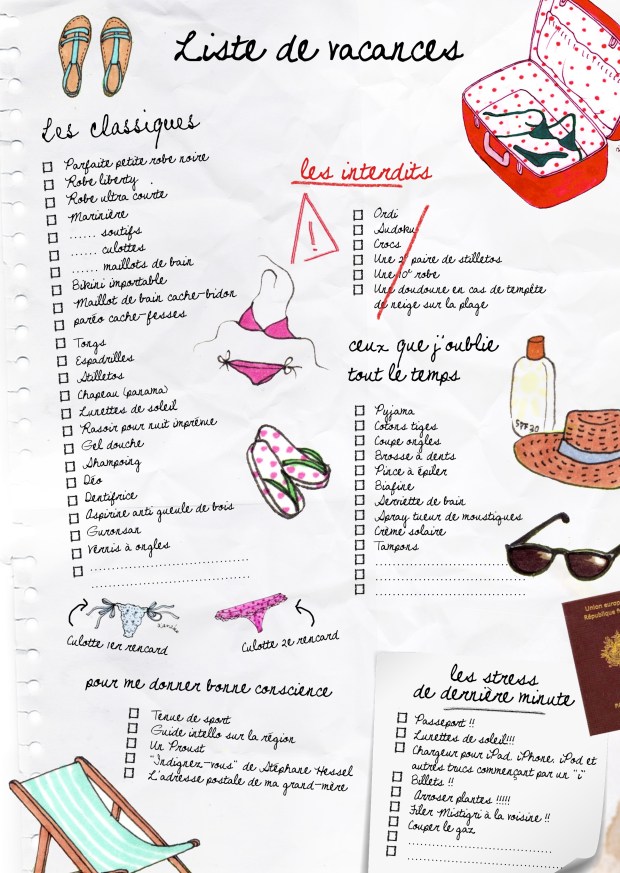 Liste de vacances
Les classiques
Parfaite petite robe noire
Robe liberty
Robe ultra courte
Marinière
...... soutifs
...... culottes
...... maillots de bain
Bikini importable
Maillot de bain cache-bidon
paréo cache-fesses
Tongs
Espadrilles
Stilletos
Chapeau (panama)
Lunettes de soleil
Rasoir pour nuit imprévue
Gel douche
Shampoing
Déo
Dentifrice
Aspirine anti gueule de bois
Guronsan
Vernis à ongles
les interdits
!
Ordi
Sudoku
Crocs
Une 2e paire de stilletos
Une 10e robe
Une doudoune en cas de tempête
de neige sur la plage
ceux que j'oublie
tout le temps
Pyjama
Cotons tiges
Coupe ongles
Brosse à dents
Pince à épiler
Biafine
Serviette de bain
Spray tueur de moustiques
Crème solaire
Tampons
SPF 20
Culotte 1er rencard
Culotte 2e rencard
pour me donner bonne conscience
Tenue de sport
Guide intello sur la région
Un Proust
"Indignez-vous" de Stéphane Hessel
L'adresse postale de ma grand-mère
Union europ
République f
les stress
de dernière minute
Passeport !!
Lunettes de soleil!!!
Chargeur pour iPad, iPhone, iPod et
autres trucs commençant par un "i"
Billets !!
Arroser plantes !!!!!
Filer Mistigri à la voisine !!
Couper le gaz